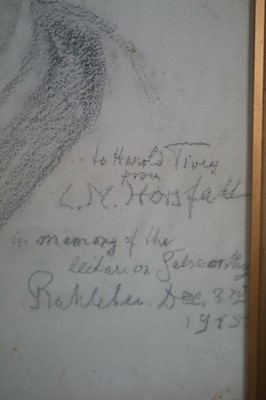 to Harold Tivey
from
C. M. Horsfall
in memory of the
lecture on Galsworthy
Ruhleben. Dec. 3rd
1915